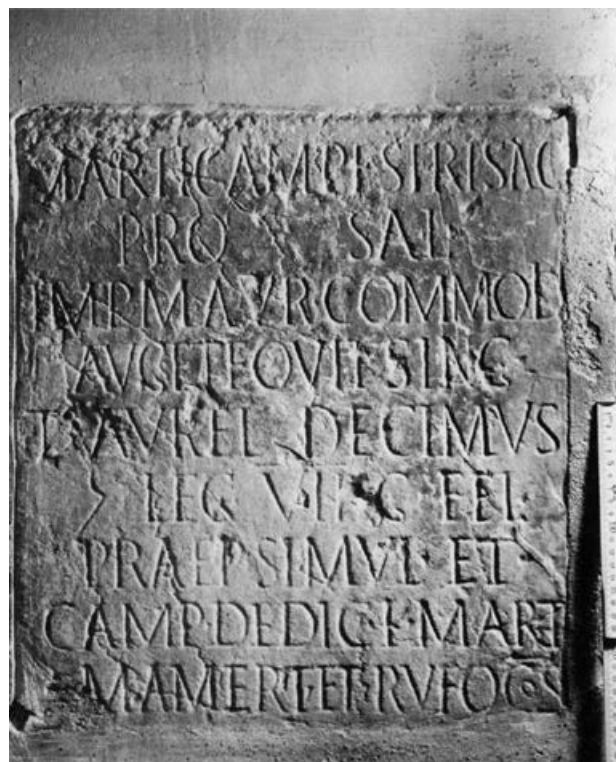 MARTI CAMPESTRI SAC
PRO SAL
IMP M AVR COMMODI
AVG ET EQVIT SING
T AVREL DECIMVS
> LEG VII G FEL
PRAEP SIMVL ET
CAMP DEDIC K MART
MAMERT ET RVFO COS